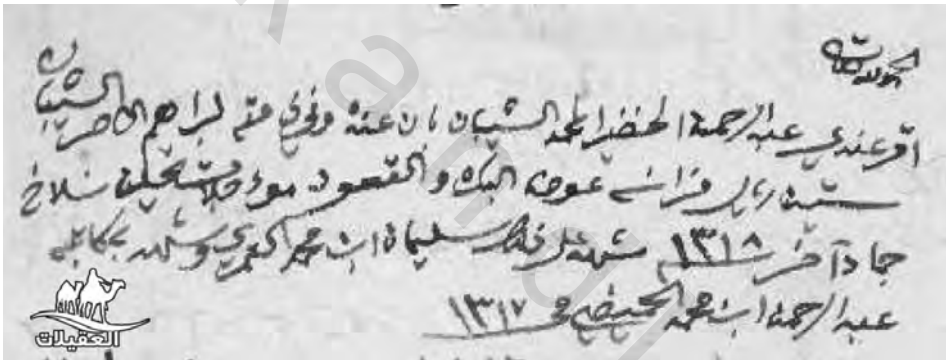 الحمد لله
اقر عندي عبدالرحمن الخضير المحمد الشيبان بان عنده وفي ذمته لبراهيم الاحمد الشيبان
ستين ريال فرانسه عوض البكره والقعود مؤجلات يحلن سلاخ
جماد آخر ١٣١٨ شهد على ذلك سليمان ابن محمد العمري وشهد به كاتبه
عبدالرحمن ابن محمد الحميضي ١٣١٧
العقيلات